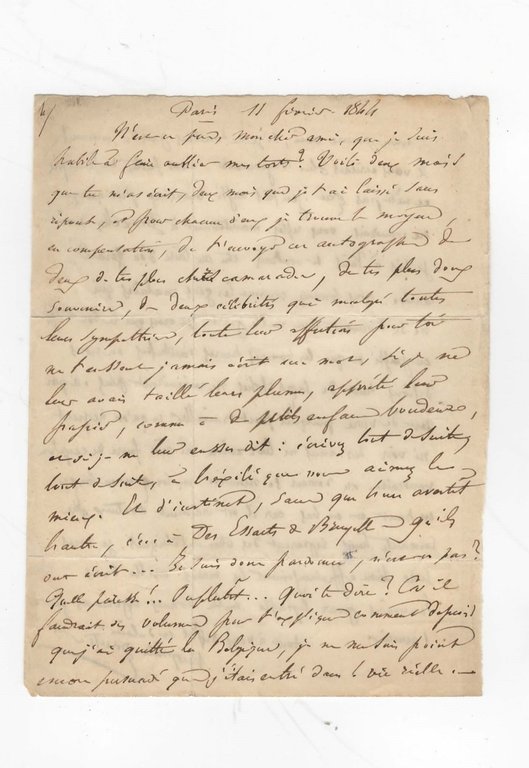 Paris 11 février 1844
N'est-ce pas, mon cher ami, que je suis
habile à faire oublier mes torts? Voilà deux mois
que tu m'as écrit, deux mois que je t'ai laissé sans
réponse, et pour chacun d'eux je trouve le moyen,
en compensation, de t'envoyer un autographe de
deux de tes plus chers camarades, de tes plus doux
souvenirs, de deux célébrités qui malgré toutes
leurs sympathies, toute leur affection pour toi
ne t'eussent jamais écrit un mot, si je ne
leur avais taillé leurs plumes, apprêté leur
papier, comme à de petits enfans boudeurs,
et si je ne leur eusse dit : écrivez tout de suite,
tout de suite, à celui que nous aimons le
mieux. Et d'instinct, sans que leur avertît
c'est à Des Essarts & qu'ils
ont écrit... Je suis donc pardonné, n'est-ce pas?
Quelle paresse!.. Ou plutôt... Qu'on te dire? Car il
faudrait des volumes pour t'expliquer comment depuis
que j'ai quitté la Belgique, je ne me suis point
encore persuadé que j'étais entré dans la vie réelle. —